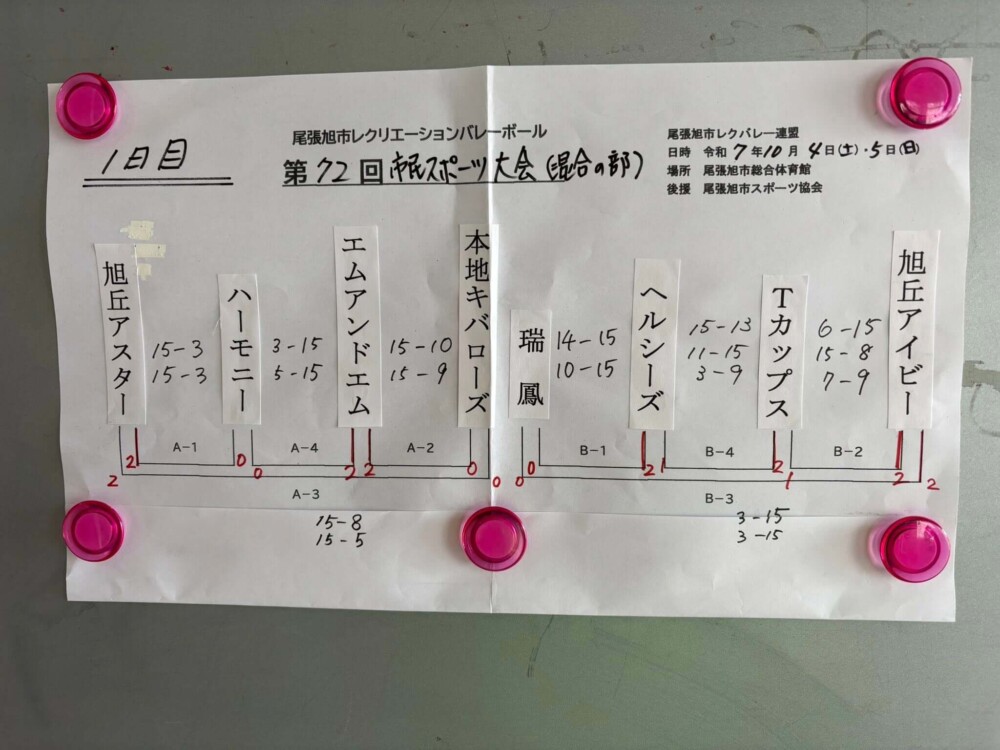 1日目
尾張旭市レクリエーションバレーボール
第72回市民スポーツ大会(混合の部)
尾張旭市レクバレー連盟
日時 令和7年10月4日(土)・5日(日)
場所 尾張旭市総合体育館
後援 尾張旭市スポーツ協会
旭丘アスター
15-3
15-3
ハーモニー
3-15
5-15
エムアンドエム
15-10
15-9
本地キバローズ
瑞鳳
14-15
10-15
ヘルシーズ
15-13
11-15
3-9
Tカップス
6-15
15-8
7-9
旭丘アイビー
2 A-1 0
0 A-4 2
2 A-2 0
0 B-1 2
1 B-4 2
1 B-2 2
2 A-3 0
0 B-3 2
15-8
15-5
3-15
3-15